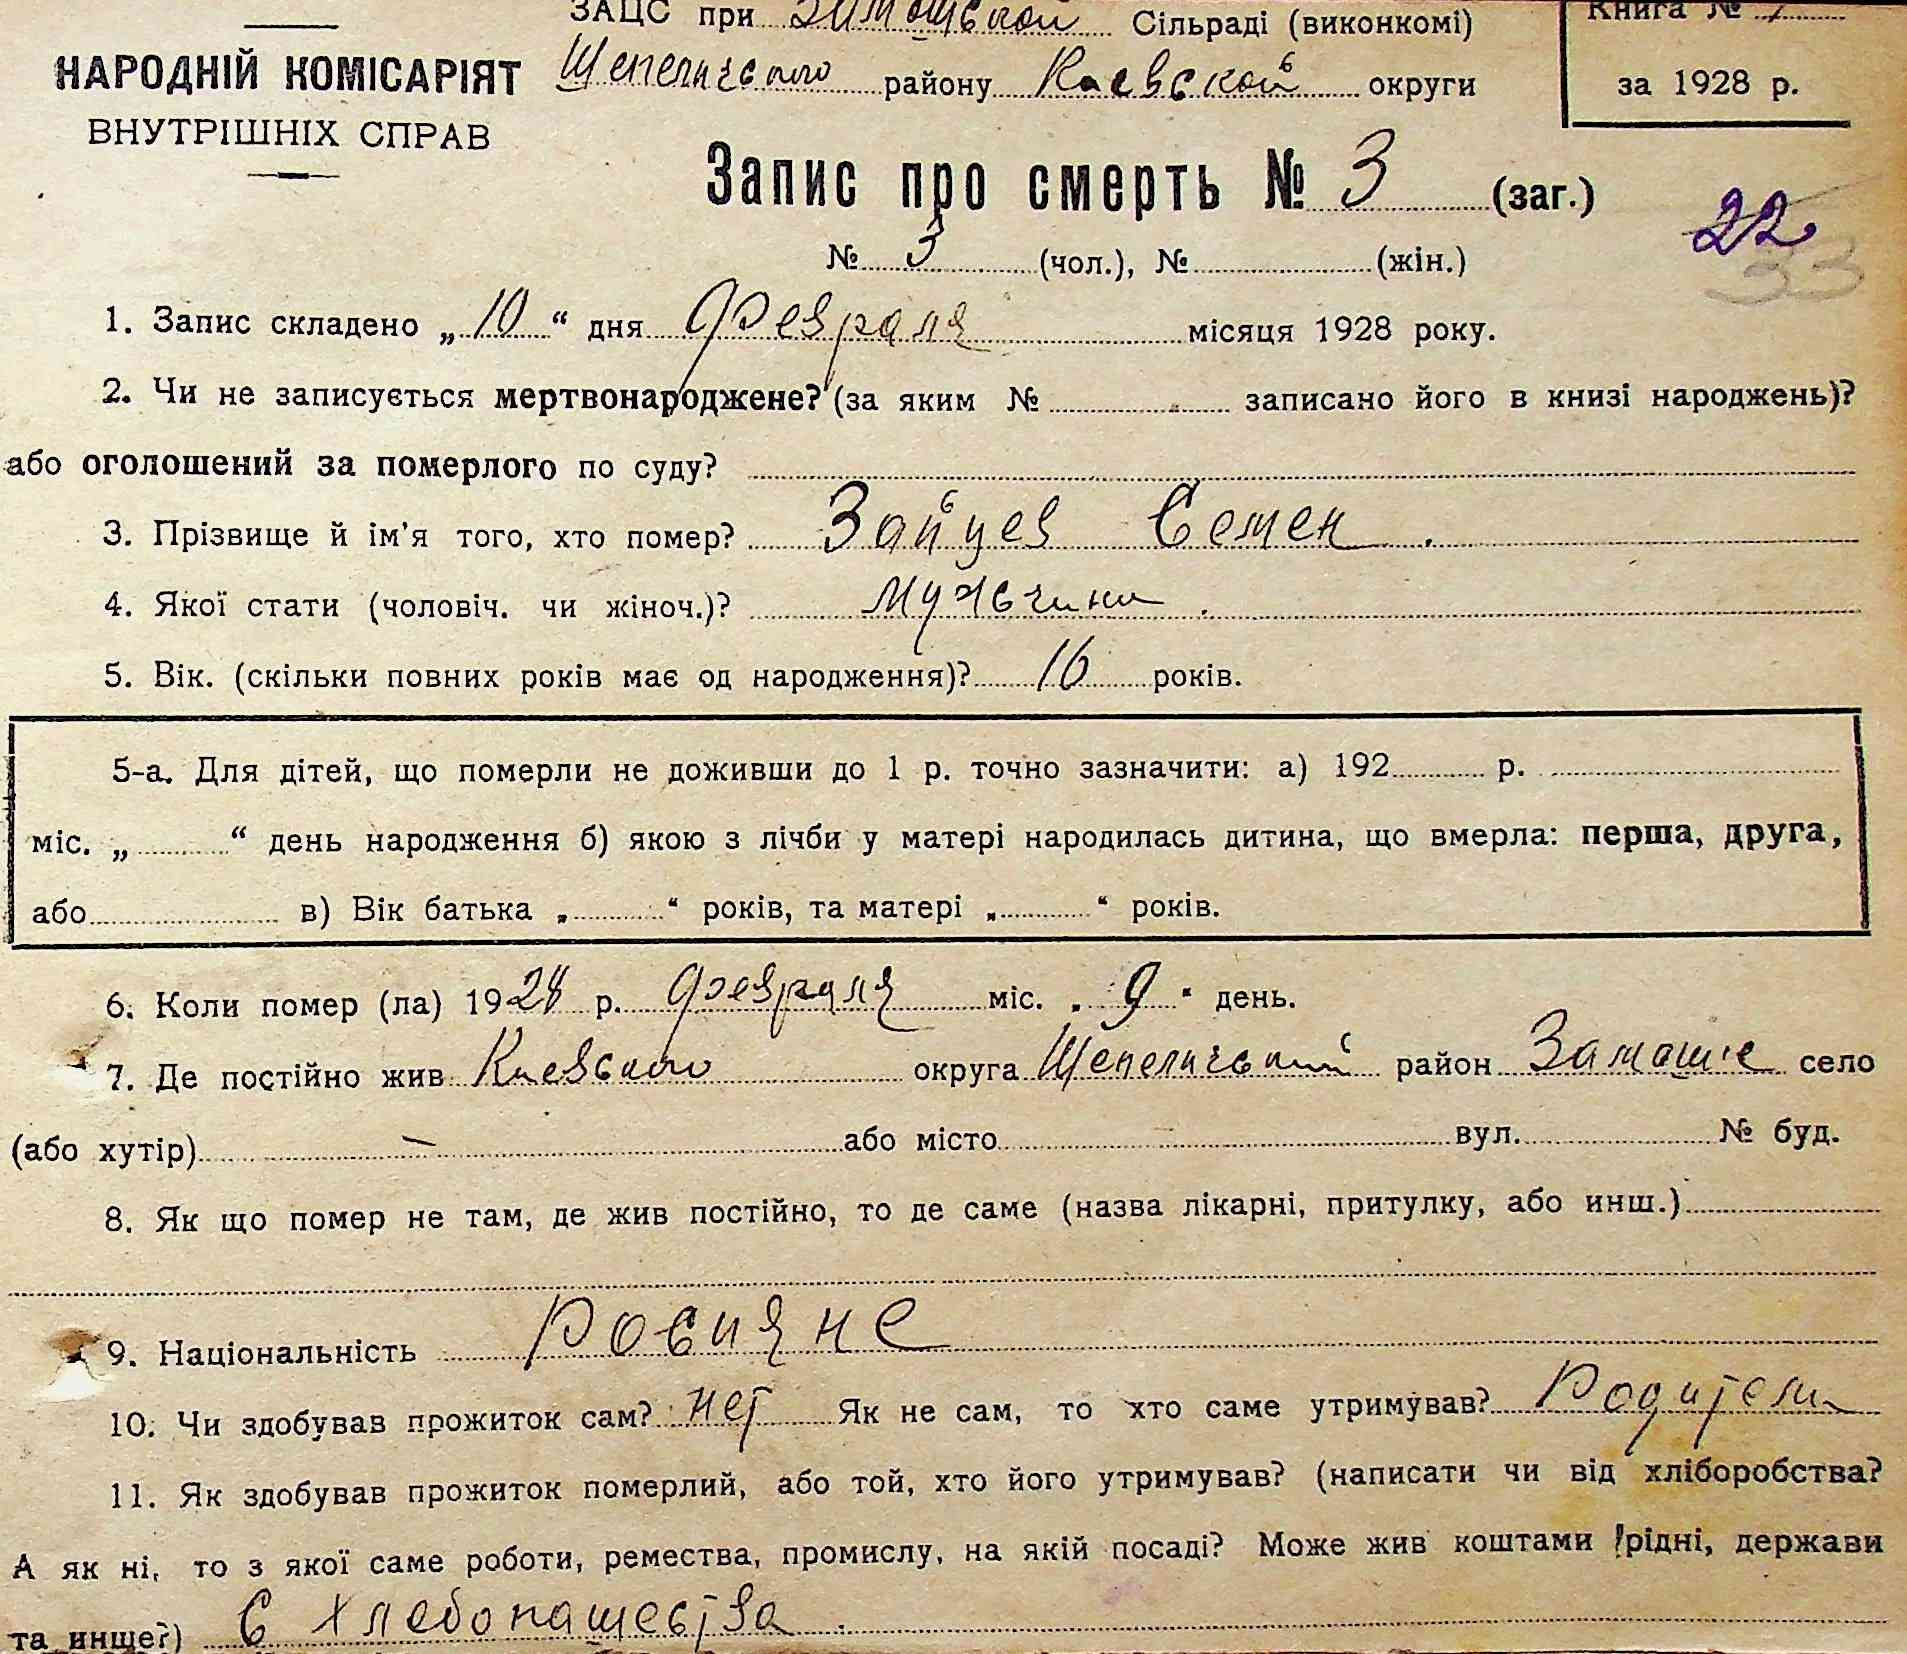 ЗАЦС при Замошской Сільраді (виконкомі)
Книга №
НАРОДНІЙ КОМІСАРІЯТ
ВНУТРІШНІХ СПРАВ
Шепеличского району Киевской округи
за 1928 р.
Запис про смерть № 3 (заг.)
22
33
№ 3 (чол.), № (жін.)
1. Запис складено „10“ дня Февраля місяця 1928 року.
2. Чи не записується мертвонароджене? (за яким № записано його в книзі народжень)?
або оголошений за померлого по суду?
3. Прізвище й ім'я того, хто помер? Зайцев Семен.
4. Якої стати (чоловіч. чи жіноч.)? мужчина.
5. Вік. (скільки повних років має од народження)? 16 років.
5-а. Для дітей, що померли не доживши до 1 р. точно зазначити: а) 192 р.
міс. „ “ день народження б) якою з лічби у матері народилась дитина, що вмерла: перша, друга,
або в) Вік батька „ “ років, та матері „ “ років.
6. Коли помер (ла) 1928 р. Февраля міс. „9“ день.
7. Де постійно жив Киевского округа Шепеличский район Замошье село
(або хутір) — або місто вул. № буд.
8. Як що помер не там, де жив постійно, то де саме (назва лікарні, притулку, або инш.)
9. Національність Росияне
10. Чи здобував прожиток сам? нет Як не сам, то хто саме утримував? Родители
11. Як здобував прожиток померлий, або той, хто його утримував? (написати чи від хліборобства?
А як ні, то з якої саме роботи, ремества, промислу, на якій посаді? Може жив коштами рідні, держави
та инше?) С хлебопашества.